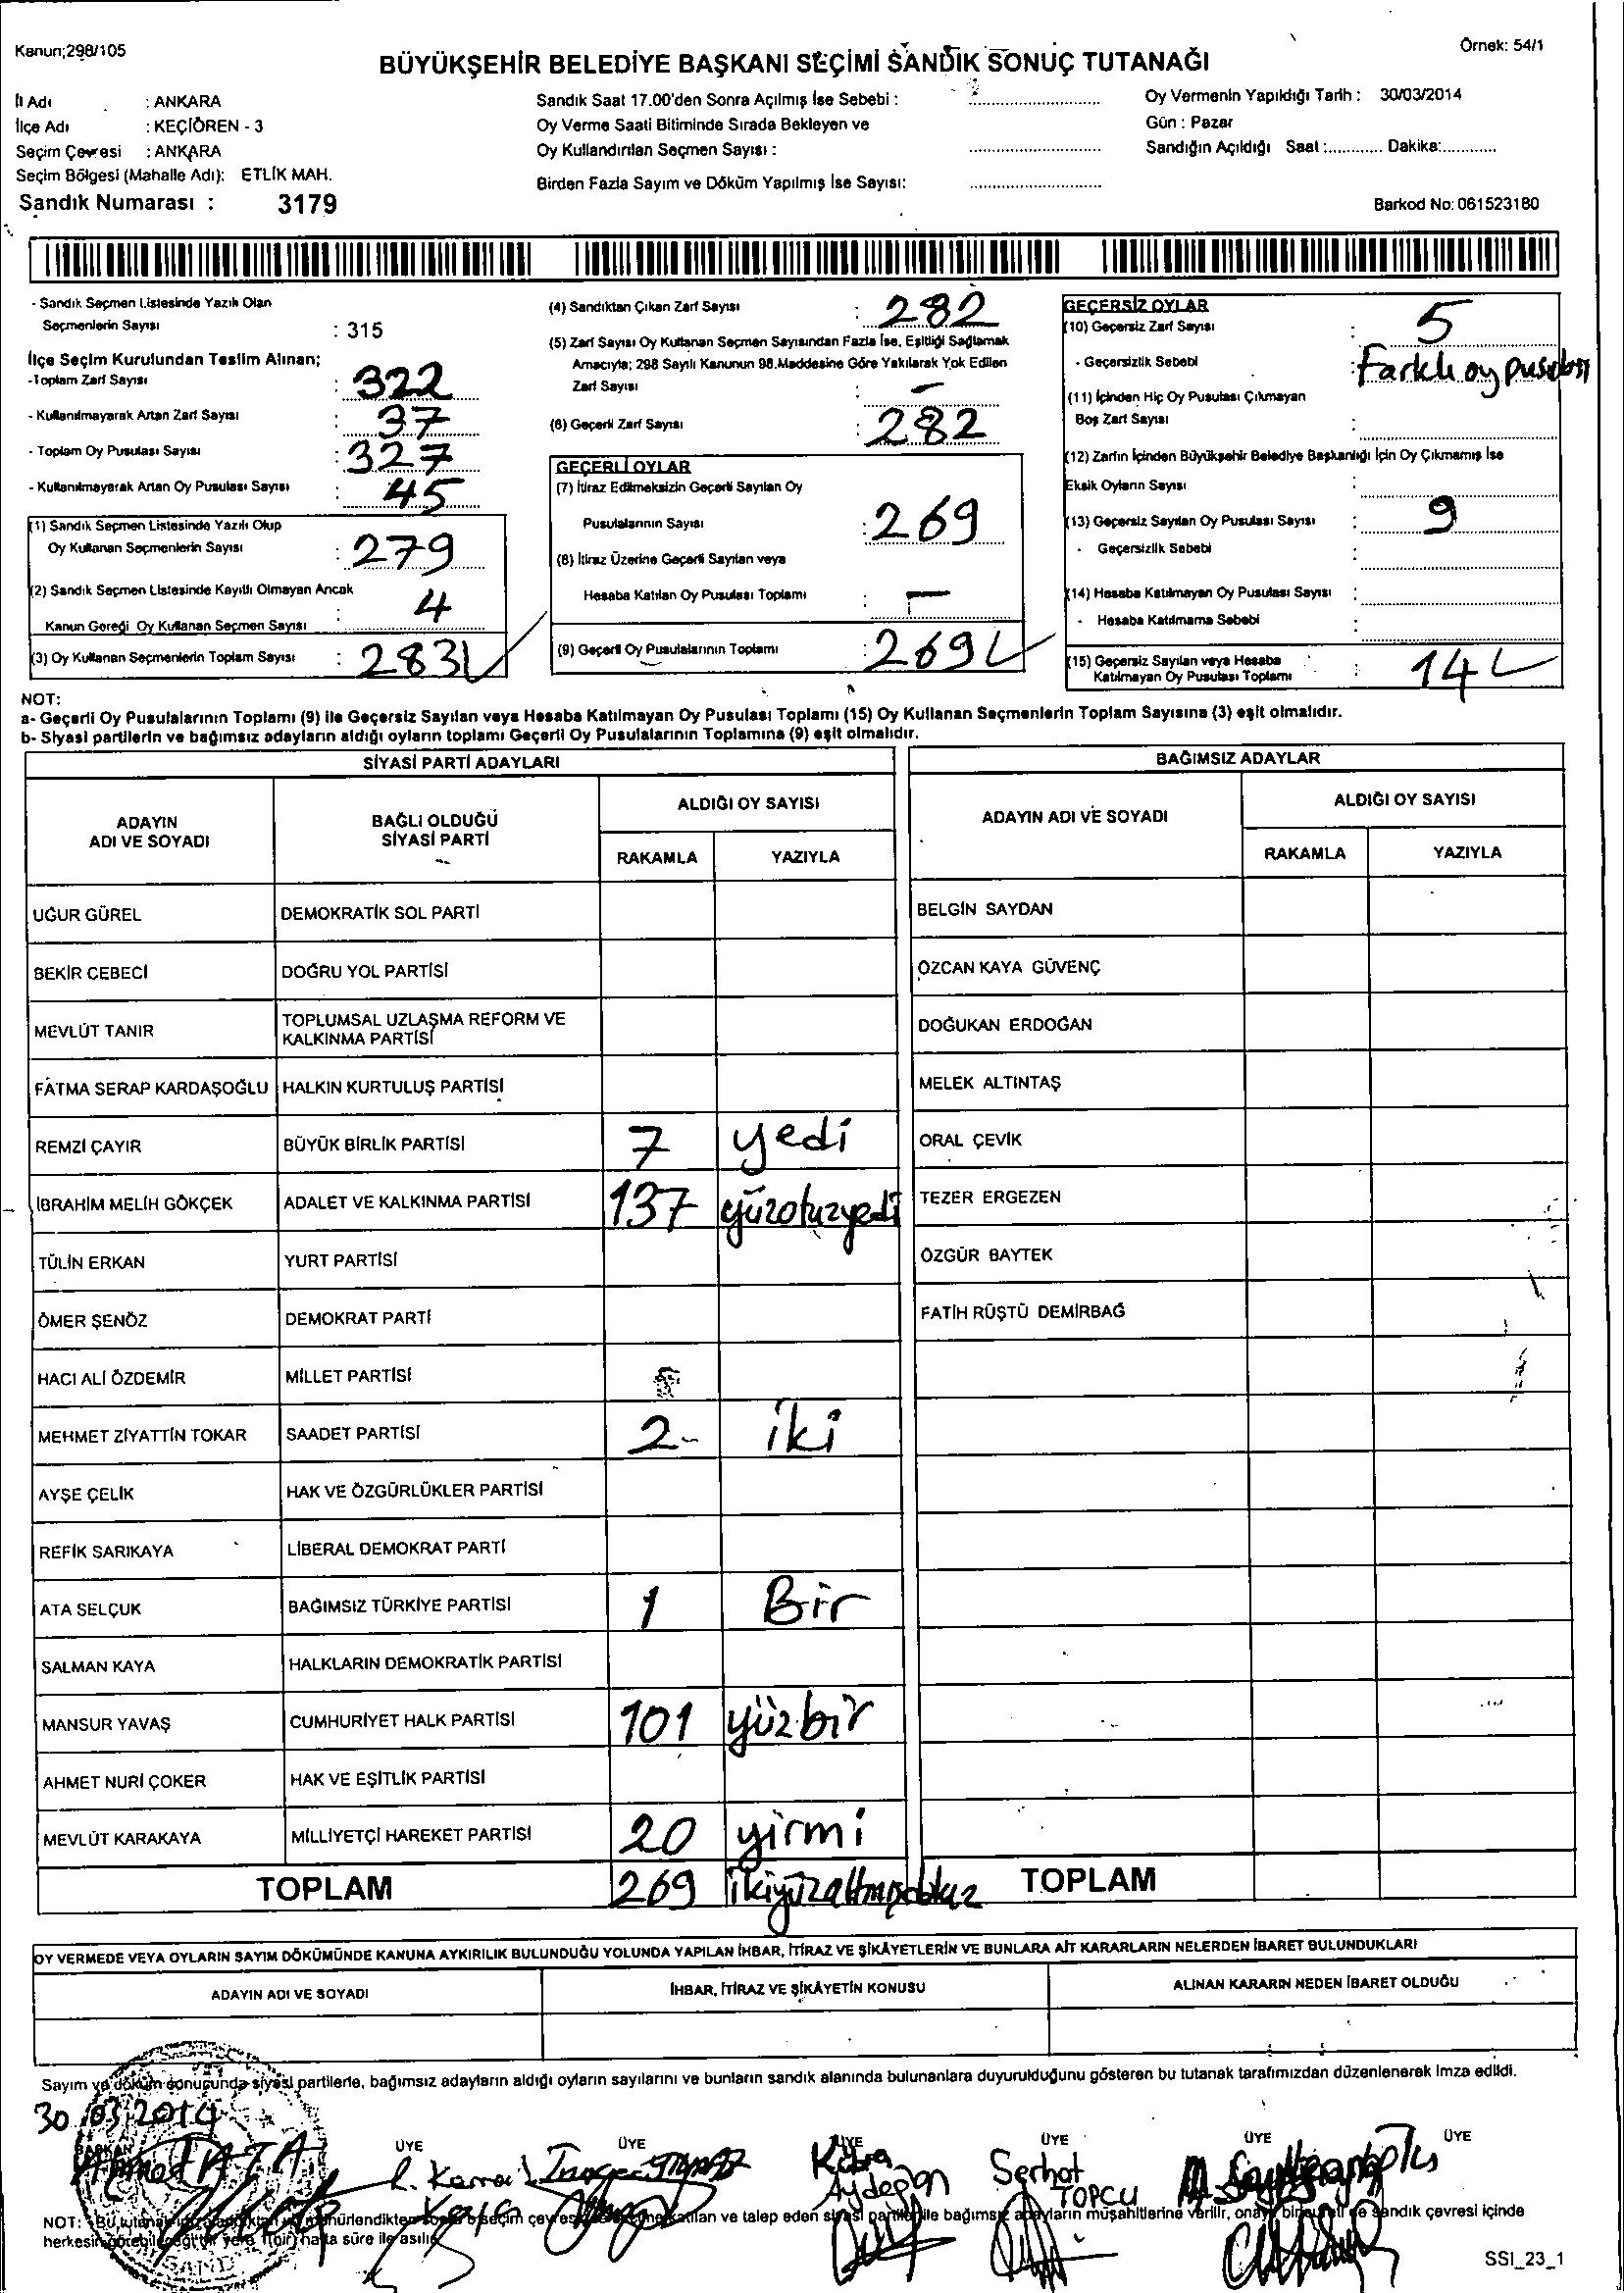 Kanun;298/105
Örnek: 54/1
BÜYÜKŞEHİR BELEDİYE BAŞKANI SEÇİMİ SANDIK SONUÇ TUTANAĞI
İl Adı : ANKARA
İlçe Adı : KEÇİÖREN - 3
Seçim Çevresi : ANKARA
Seçim Bölgesi (Mahalle Adı): ETLİK MAH.
Sandık Numarası : 3179
Sandık Saat 17.00'den Sonra Açılmış İse Sebebi :
Oy Verme Saati Bitiminde Sırada Bekleyen ve
Oy Kullandırılan Seçmen Sayısı :
Birden Fazla Sayım ve Döküm Yapılmış İse Sayısı:
Oy Vermenin Yapıldığı Tarih : 30/03/2014
Gün : Pazar
Sandığın Açıldığı Saat :............ Dakika:............
Barkod No: 061523180
- Sandık Seçmen Listesinde Yazılı Olan
Seçmenlerin Sayısı : 315
İlçe Seçim Kurulundan Teslim Alınan;
-Toplam Zarf Sayısı : 322
- Kullanılmayarak Artan Zarf Sayısı : 37
- Toplam Oy Pusulası Sayısı : 327
- Kullanılmayarak Artan Oy Pusulası Sayısı : 45
(1) Sandık Seçmen Listesinde Yazılı Olup
Oy Kullanan Seçmenlerin Sayısı : 279
(2) Sandık Seçmen Listesinde Kayıtlı Olmayan Ancak
Kanun Gereği Oy Kullanan Seçmen Sayısı : 4
(3) Oy Kullanan Seçmenlerin Toplam Sayısı : 283
(4) Sandıktan Çıkan Zarf Sayısı : 282
(5) Zarf Sayısı Oy Kullanan Seçmen Sayısından Fazla İse, Eşitliği Sağlamak
Amacıyla; 298 Sayılı Kanunun 98.Maddesine Göre Yakılarak Yok Edilen
Zarf Sayısı : -
(6) Geçerli Zarf Sayısı : 282
GEÇERLİ OYLAR
(7) İtiraz Edilmeksizin Geçerli Sayılan Oy
Pusulalarının Sayısı : 269
(8) İtiraz Üzerine Geçerli Sayılan veya
Hesaba Katılan Oy Pusulası Toplamı : -
(9) Geçerli Oy Pusulalarının Toplamı : 269
GEÇERSİZ OYLAR
(10) Geçersiz Zarf Sayısı : 5
- Geçersizlik Sebebi : Farklı oy pusulası
(11) İçinden Hiç Oy Pusulası Çıkmayan
Boş Zarf Sayısı :
(12) Zarfın İçinden Büyükşehir Belediye Başkanlığı İçin Oy Çıkmamış İse
Eksik Oyların Sayısı :
(13) Geçersiz Sayılan Oy Pusulası Sayısı : 9
- Geçersizlik Sebebi :
(14) Hesaba Katılmayan Oy Pusulası Sayısı :
- Hesaba Katılmama Sebebi :
(15) Geçersiz Sayılan veya Hesaba
Katılmayan Oy Pusulası Toplamı : 14
NOT:
a- Geçerli Oy Pusulalarının Toplamı (9) ile Geçersiz Sayılan veya Hesaba Katılmayan Oy Pusulası Toplamı (15) Oy Kullanan Seçmenlerin Toplam Sayısına (3) eşit olmalıdır.
b- Siyasi partilerin ve bağımsız adayların aldığı oyların toplamı Geçerli Oy Pusulalarının Toplamına (9) eşit olmalıdır.
SİYASİ PARTİ ADAYLARI
ADAYIN
ADI VE SOYADI
BAĞLI OLDUĞU
SİYASİ PARTİ
ALDIĞI OY SAYISI
RAKAMLA YAZIYLA
UĞUR GÜREL DEMOKRATİK SOL PARTİ
BEKİR CEBECİ DOĞRU YOL PARTİSİ
MEVLÜT TANIR TOPLUMSAL UZLAŞMA REFORM VE
KALKINMA PARTİSİ
FATMA SERAP KARDAŞOĞLU HALKIN KURTULUŞ PARTİSİ
REMZİ ÇAYIR BÜYÜK BİRLİK PARTİSİ 7 yedi
İBRAHİM MELİH GÖKÇEK ADALET VE KALKINMA PARTİSİ 137 yüzotuzyedi
TÜLİN ERKAN YURT PARTİSİ
ÖMER ŞENÖZ DEMOKRAT PARTİ
HACI ALİ ÖZDEMİR MİLLET PARTİSİ
MEHMET ZİYATTİN TOKAR SAADET PARTİSİ 2- iki
AYŞE ÇELİK HAK VE ÖZGÜRLÜKLER PARTİSİ
REFİK SARIKAYA LİBERAL DEMOKRAT PARTİ
ATA SELÇUK BAĞIMSIZ TÜRKİYE PARTİSİ 1 Bir
SALMAN KAYA HALKLARIN DEMOKRATİK PARTİSİ
MANSUR YAVAŞ CUMHURİYET HALK PARTİSİ 101 yüzbir
AHMET NURİ ÇOKER HAK VE EŞİTLİK PARTİSİ
MEVLÜT KARAKAYA MİLLİYETÇİ HAREKET PARTİSİ 20 yirmi
TOPLAM 269 ikiyüzaltmışdokuz
BAĞIMSIZ ADAYLAR
ADAYIN ADI VE SOYADI
ALDIĞI OY SAYISI
RAKAMLA YAZIYLA
BELGİN SAYDAN
ÖZCAN KAYA GÜVENÇ
DOĞUKAN ERDOĞAN
MELEK ALTINTAŞ
ORAL ÇEVİK
TEZER ERGEZEN
ÖZGÜR BAYTEK
FATİH RÜŞTÜ DEMİRBAĞ
TOPLAM
OY VERMEDE VEYA OYLARIN SAYIM DÖKÜMÜNDE KANUNA AYKIRILIK BULUNDUĞU YOLUNDA YAPILAN İHBAR, İTİRAZ VE ŞİKÂYETLERİN VE BUNLARA AİT KARARLARIN NELERDEN İBARET BULUNDUKLARI
ADAYIN ADI VE SOYADI
İHBAR, İTİRAZ VE ŞİKÂYETİN KONUSU
ALINAN KARARIN NEDEN İBARET OLDUĞU
Sayım ve döküm sonucunda siyasi partilerle, bağımsız adayların aldığı oyların sayılarını ve bunların sandık alanında bulunanlara duyurulduğunu gösteren bu tutanak tarafımızdan düzenlenerek imza edildi.
30.03.2014
BAŞKAN ÜYE ÜYE ÜYE ÜYE ÜYE ÜYE
Ahmet ATA
Kübra
Aydoğan
Serhat
TOPCU
NOT: Bu tutanak seçim ve talep eden siyasi partiler ile bağımsız adayların müşahitlerine verilir, sandık çevresi içinde
herkesin hafta süre ile asılır.
SSI_23_1